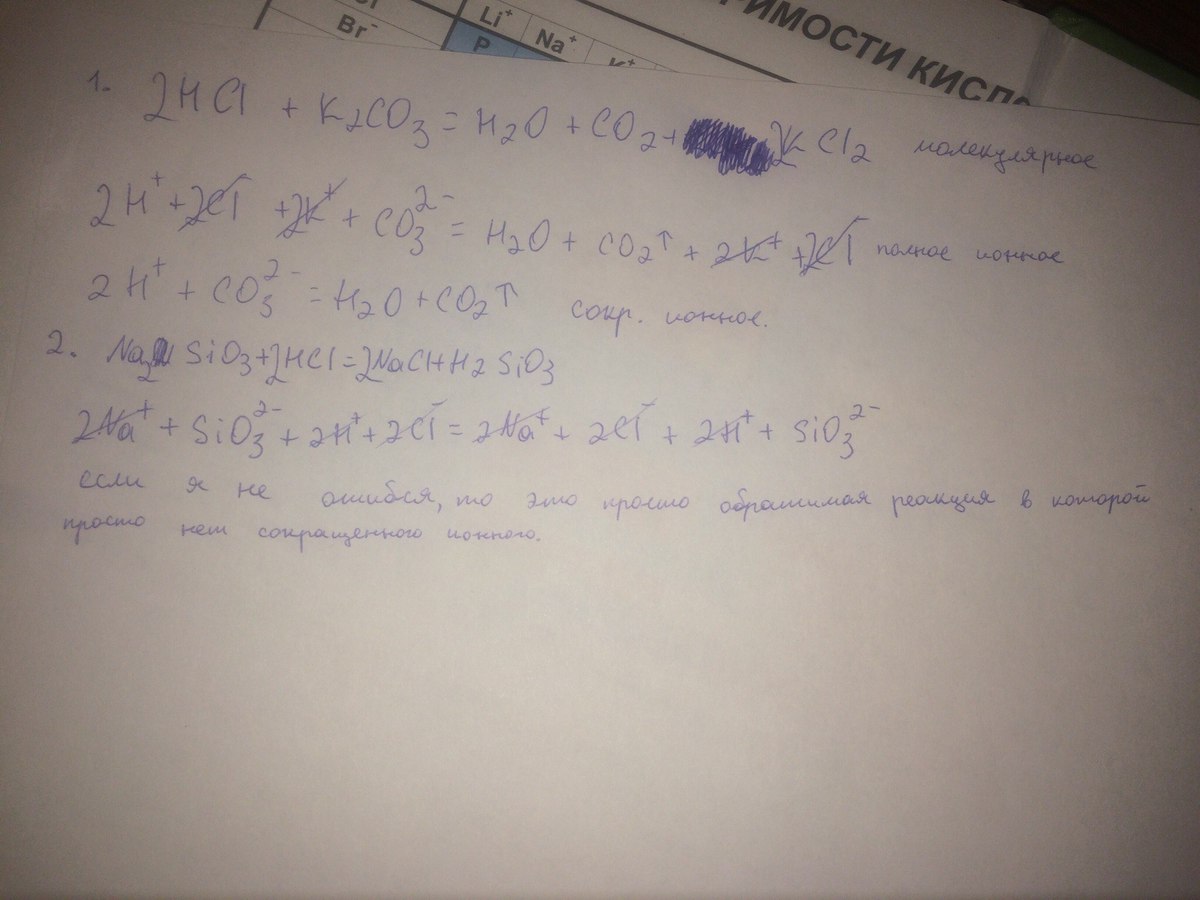 Br⁻
Li⁺ Na⁺ K⁺
Р
РИМОСТИ КИСЛО
1. 2HCl + K₂CO₃ = H₂O + CO₂ + 2KCl₂ молекулярное
2H⁺ + 2Cl⁻ + 2K⁺ + CO₃²⁻ = H₂O + CO₂↑ + 2K⁺ + 2Cl⁻ полное ионное
2H⁺ + CO₃²⁻ = H₂O + CO₂↑ сокр. ионное.
2. Na₂SiO₃ + 2HCl = 2NaCl + H₂SiO₃
2Na⁺ + SiO₃²⁻ + 2H⁺ + 2Cl⁻ = 2Na⁺ + 2Cl⁻ + 2H⁺ + SiO₃²⁻
если я не ошибся, то это просто обратимая реакция в которой
просто нет сокращенного ионного.